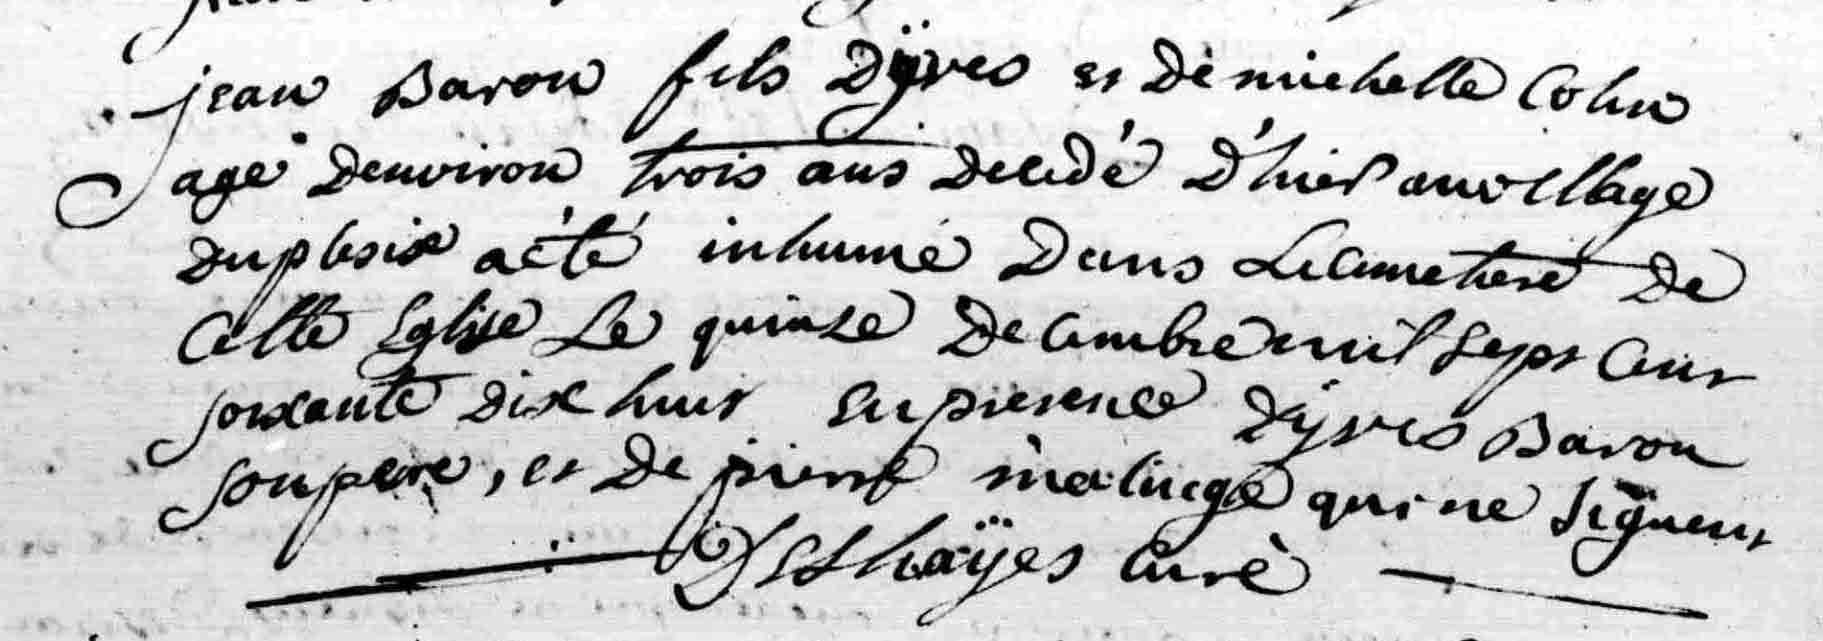 jean Baron fils Dÿves et De michelle Colin
agé Denviron trois ans Decedé D'hier au village
Duplesix a été inhumé Dans Le cimetiere De
Cette Eglise Le quinze Decembre mil Sept Cent
soixante Dix huit en presence D'ÿves Baron
son pere, et De pierre qui ne signent
Deshaÿes Curé